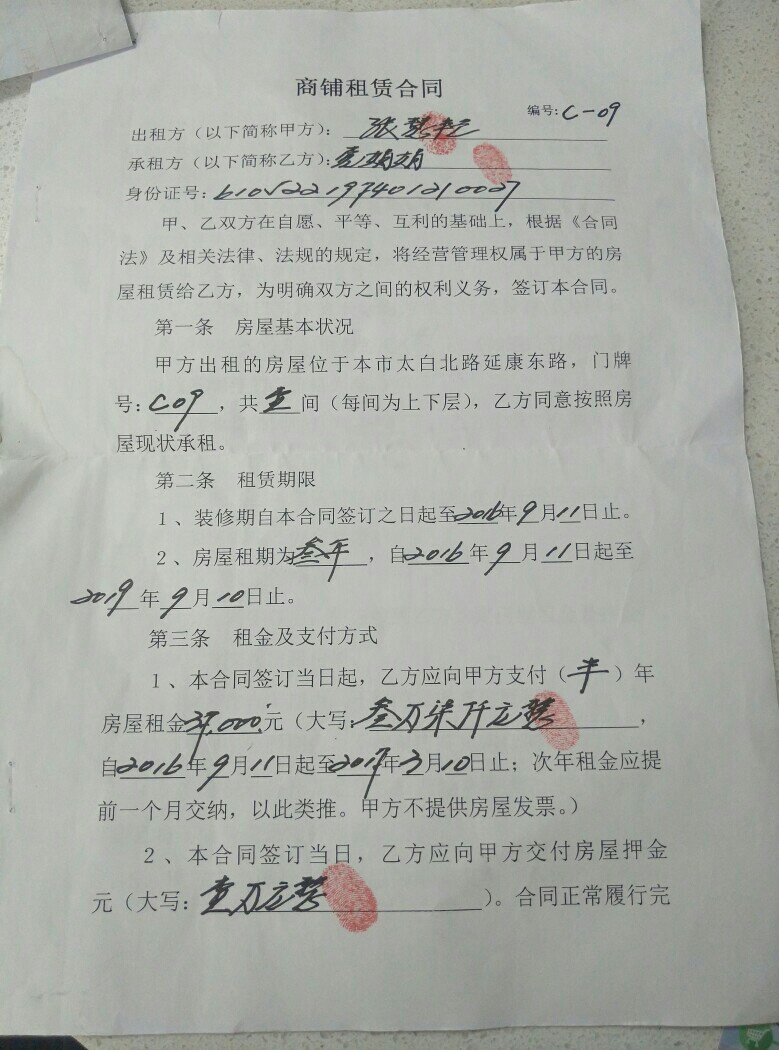 商铺租赁合同
编号:C-09
出租方（以下简称甲方）：张
承租方（以下简称乙方）：娟娟
身份证号：610522197401210027
甲、乙双方在自愿、平等、互利的基础上，根据《合同
法》及相关法律、法规的规定，将经营管理权属于甲方的房
屋租赁给乙方，为明确双方之间的权利义务，签订本合同。
第一条　房屋基本状况
甲方出租的房屋位于本市太白北路延康东路，门牌
号：C09，共壹间（每间为上下层），乙方同意按照房
屋现状承租。
第二条　租赁期限
1、装修期自本合同签订之日起至2016年9月11日止。
2、房屋租期为叁年，自2016年9月11日起至
2019年9月10日止。
第三条　租金及支付方式
1、本合同签订当日起，乙方应向甲方支付（半）年
房屋租金37,000元（大写：叁万柒仟元整，
自2016年9月11日起至2017年3月10日止；次年租金应提
前一个月交纳，以此类推。甲方不提供房屋发票。）
2、本合同签订当日，乙方应向甲方交付房屋押金
元（大写：壹万元整）。合同正常履行完